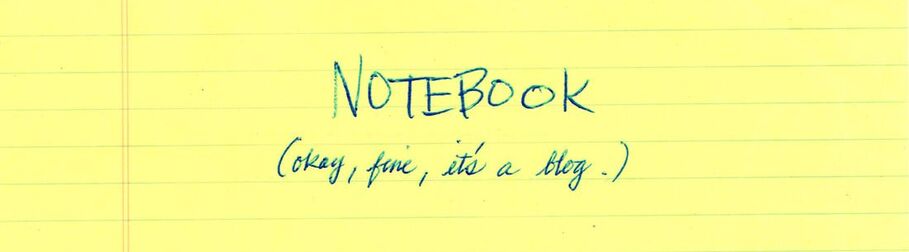 NOTEBOOK
(okay, fine, it's a blog.)